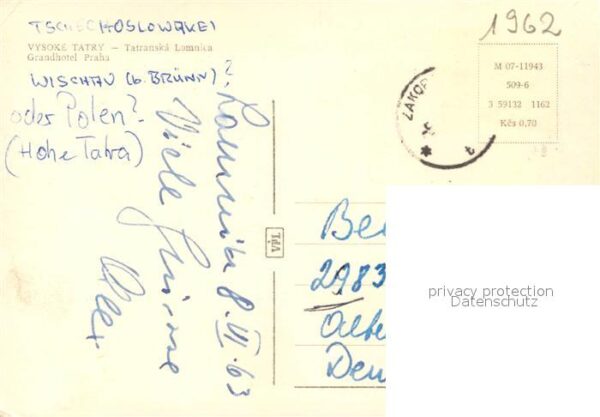 TSCHECHOSLOWAKEI
VYSOKE TATRY — Tatranská Lomnica
Grandhotel Praha
WISCHAU (b. BRÜNN)?
oder Polen?
(Hohe Tatra)
1962
M 07-11943
509-6
3 59132 1162
Kčs 0,70
ZAKOP
Lomnica 8.VI.63
Viele Grüsse
VPL
2983
privacy protection
Datenschutz